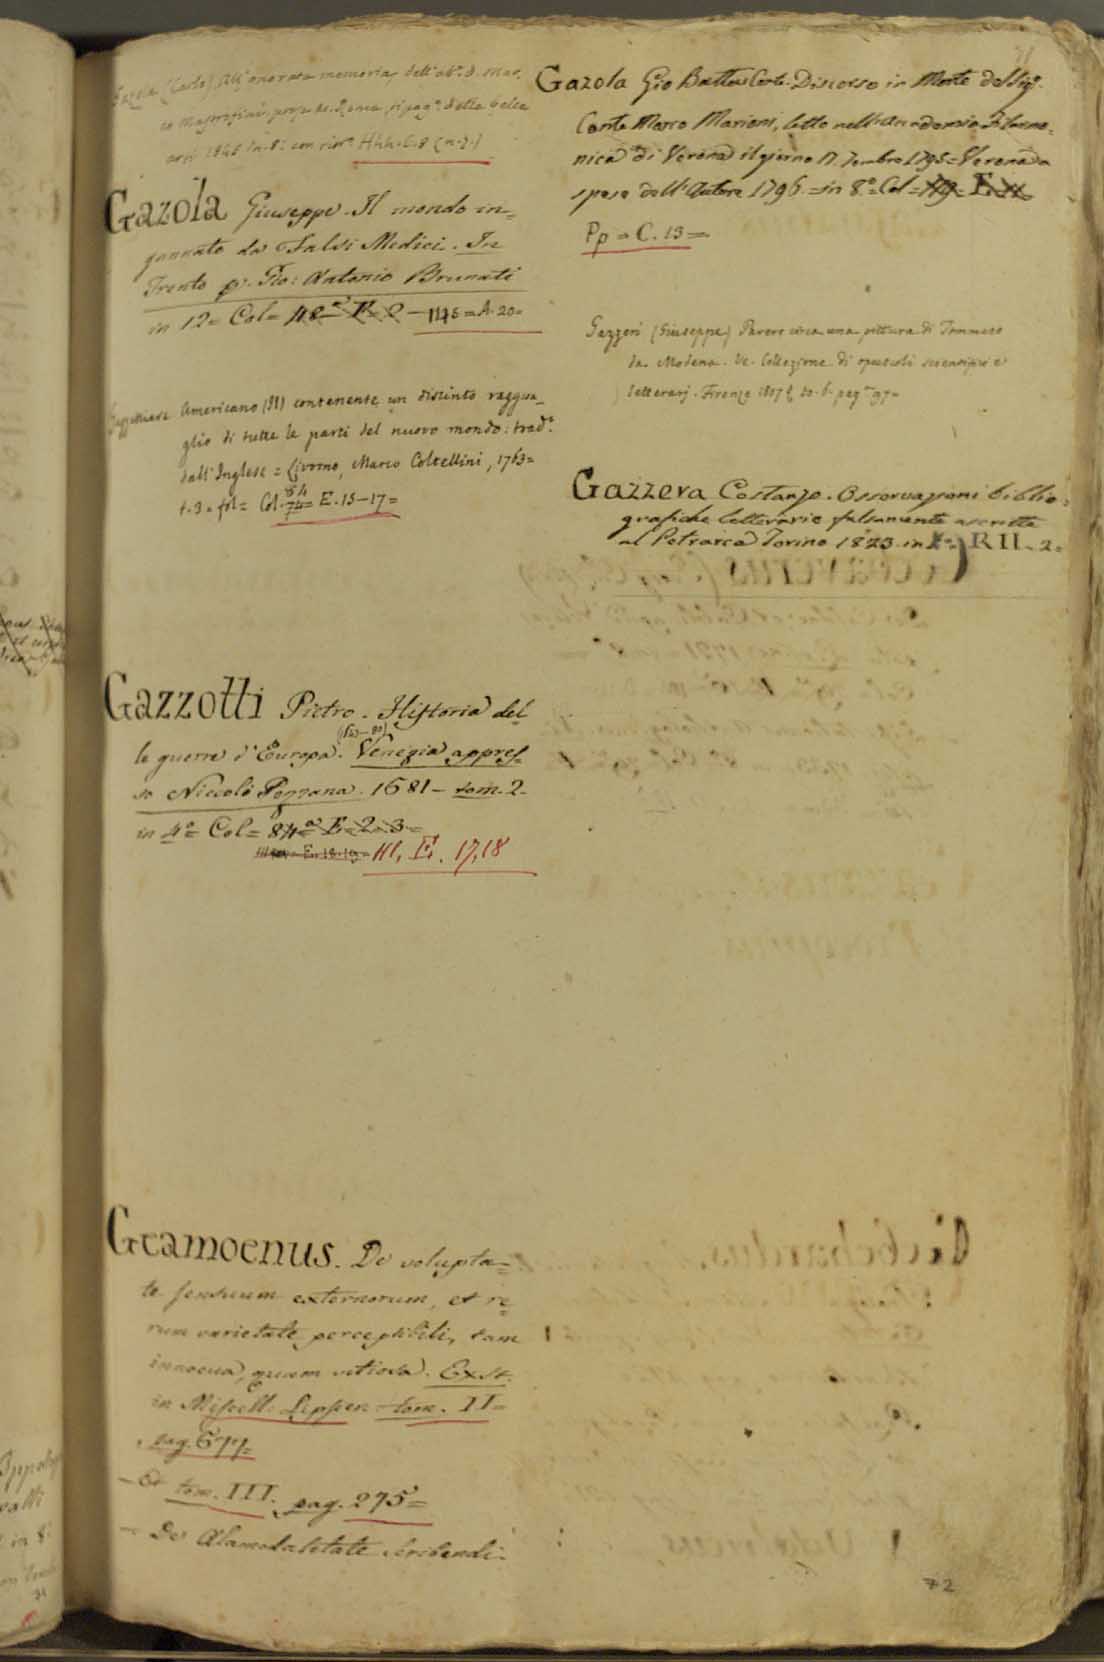 71
Gazola (Carlo) All'onorata memoria dell'ab.e D. Mar.
co Mastrofini, prof. in Roma, si pag.a della belca
1845 in 8.° con rit.° Hhh. C. 8 (n. 7.)
Gazola Giuseppe. Il mondo in=
gannato da Falsi Medici. In
Trento p. Gio: Antonio Brunati
in 12= Col= 48= E. 2 - 1145=A. 20=
Gazzettiere Americano (Il) contenente un distinto raggua_
glio di tutte le parti del nuovo mondo: trad.°
dall'Inglese = Livorno, Marco Coltellini, 1763=
t. 3 = fol= Col. 74= 84 E. 15-17=
Gazzotti Pietro. Historia del
le guerre d'Europa. Venezia appres=
so Niccolò Pezzana. 1681 - tom. 2.
in 4°= Col= 84= E= 2. 3=
E. 18. 19= 111. E. 17, 18
Geamoenus. De volupta=
te sensuum externorum, et re=
rum varietate perceptibili, tam
innocua, quam vitiosa. Exst.
in Miscell: Lipsien= tom. II=
pag. 677=
- Et tom. III. pag. 275=
- De Alamodalitate scribendi.
Gazola Gio Batta Conte. Discorso in Morte del Sig.r
Conte Marco Marioni, letto nell'accademia Filarmo=
nica di Verona il giorno 17. 1795= Verona a
spese dell'Autore 1796.=in 8.°= Col= 119= E. 11=
Pp = C. 13=
Gazzeri (Giuseppe) Parere circa una pittura di Tommaso
da Modena. Ve. Collezione di opuscoli scientifici e
letterarj. Firenze 1807 to. 6. pag.a 97=
Gazzera Costanzo. Osservazioni biblio=
grafiche letterarie falsamente ascritte
al Petrarca Torino 1823. in RII. 2=
72